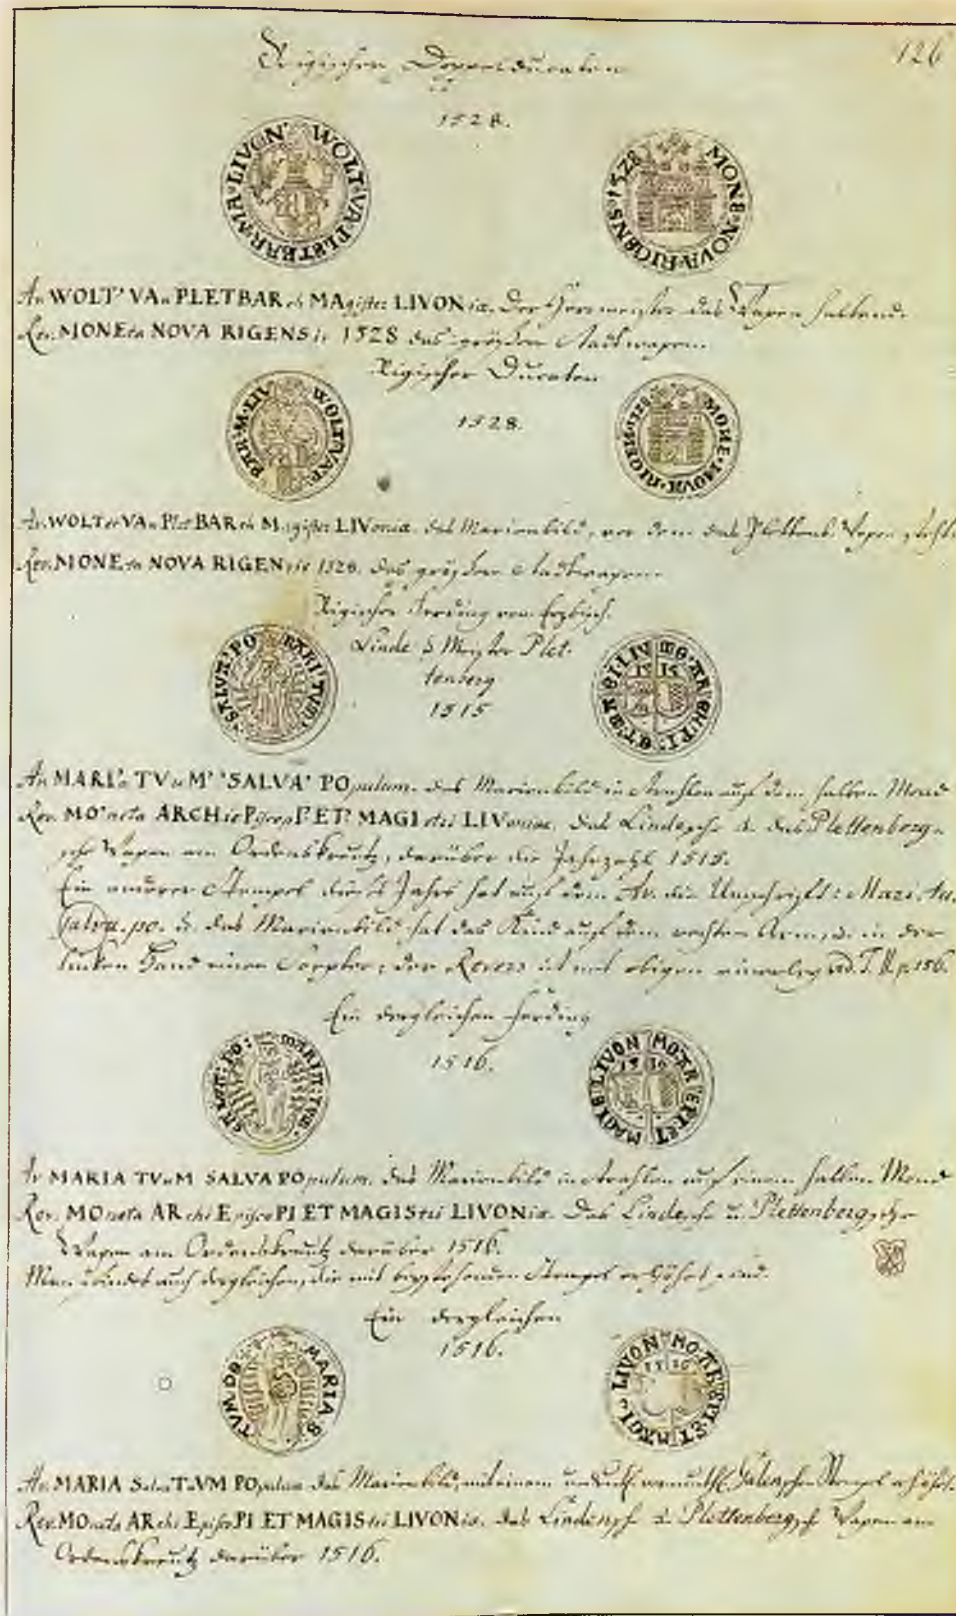 126
Rigischer Doppelducaten
1528.
WOLT·VA·PLETBAR·MA·LIVON'
MONE·NOVA·RIGENS·1528
Av. WOLT' VAn PLETBARch MAgister LIVONiæ. Der Herrmeister das Wapen haltend.
Rev. MONEta NOVA RIGENSis 1528 das größere Stadtwapen.
Rigischer Ducaten
1528.
WOLT·VA·P· BAR·M·LIV
MONE·NOVA·RIGEN·1528
Av. WOLTerVAn PletBARch Magister LIVoniæ. das Marienbild, vor dem das Plettenb. Wapen steht.
Rev. MONEta NOVA RIGENsis 1528. das größere Stadtwapen.
Rigischer Ferding vom Erzbisch.
Linde & Meister Plet-
tenberg
1515
MARI'·TVM· SALVA'·PO
MO·ARCH·PI·ET·MAGI·LIV
1515
Av. MARI'a TVuM' SALVA' POpulum. das Marienbild in Strahlen auf dem halben Mond
Rev. MO'neta ARCHiePiscopI' ET' MAGIstri LIVoniae. das Lindesche & das Plettenberg-
sche Wapen am Ordenskreutz, darüber die Jahrzahl 1515.
Ein anderer Stempel dieses Jahrs hat auf dem Av. die Umschrift: Mari. tu.
salva. po. & das Marienbild hat das Kind auf dem rechten Arm, & in der
linken Hand einen Scepter; der Revers ist mit obigen einerley vid. T. II. p. 156.
Ein dergleichen Ferding
1516.
MARIA·TVM· SALVA·PO:
MO·AR·EPI·ET MAGIS LIVON
1516
Av. MARIA TVuM SALVA POpulum. das Marienbild in Strahlen auf einem halben Mond
Rev. MOneta ARchi EpiscoPI ET MAGIStri LIVONiæ. Das Lindesche & Plettenbergsche
Wapen am Ordenskreutz darüber 1516.
Man findet auch dergleichen, die mit beystehenden Stempel erhöhet sind.
Ein dergleichen
1516.
MARIA·S· TVM·PO
MO·AR·EPI·ET·MAGI· LIVON
1516
Av. MARIA Salva TuVM POpulum das Marienbild, mit einem Stempel erhöhet.
Rev. MOneta ARchi EpiscoPI ET MAGIStri LIVONiæ. das Lindensche & Plettenbergsche Wapen am
Ordenskreutz darüber 1516.